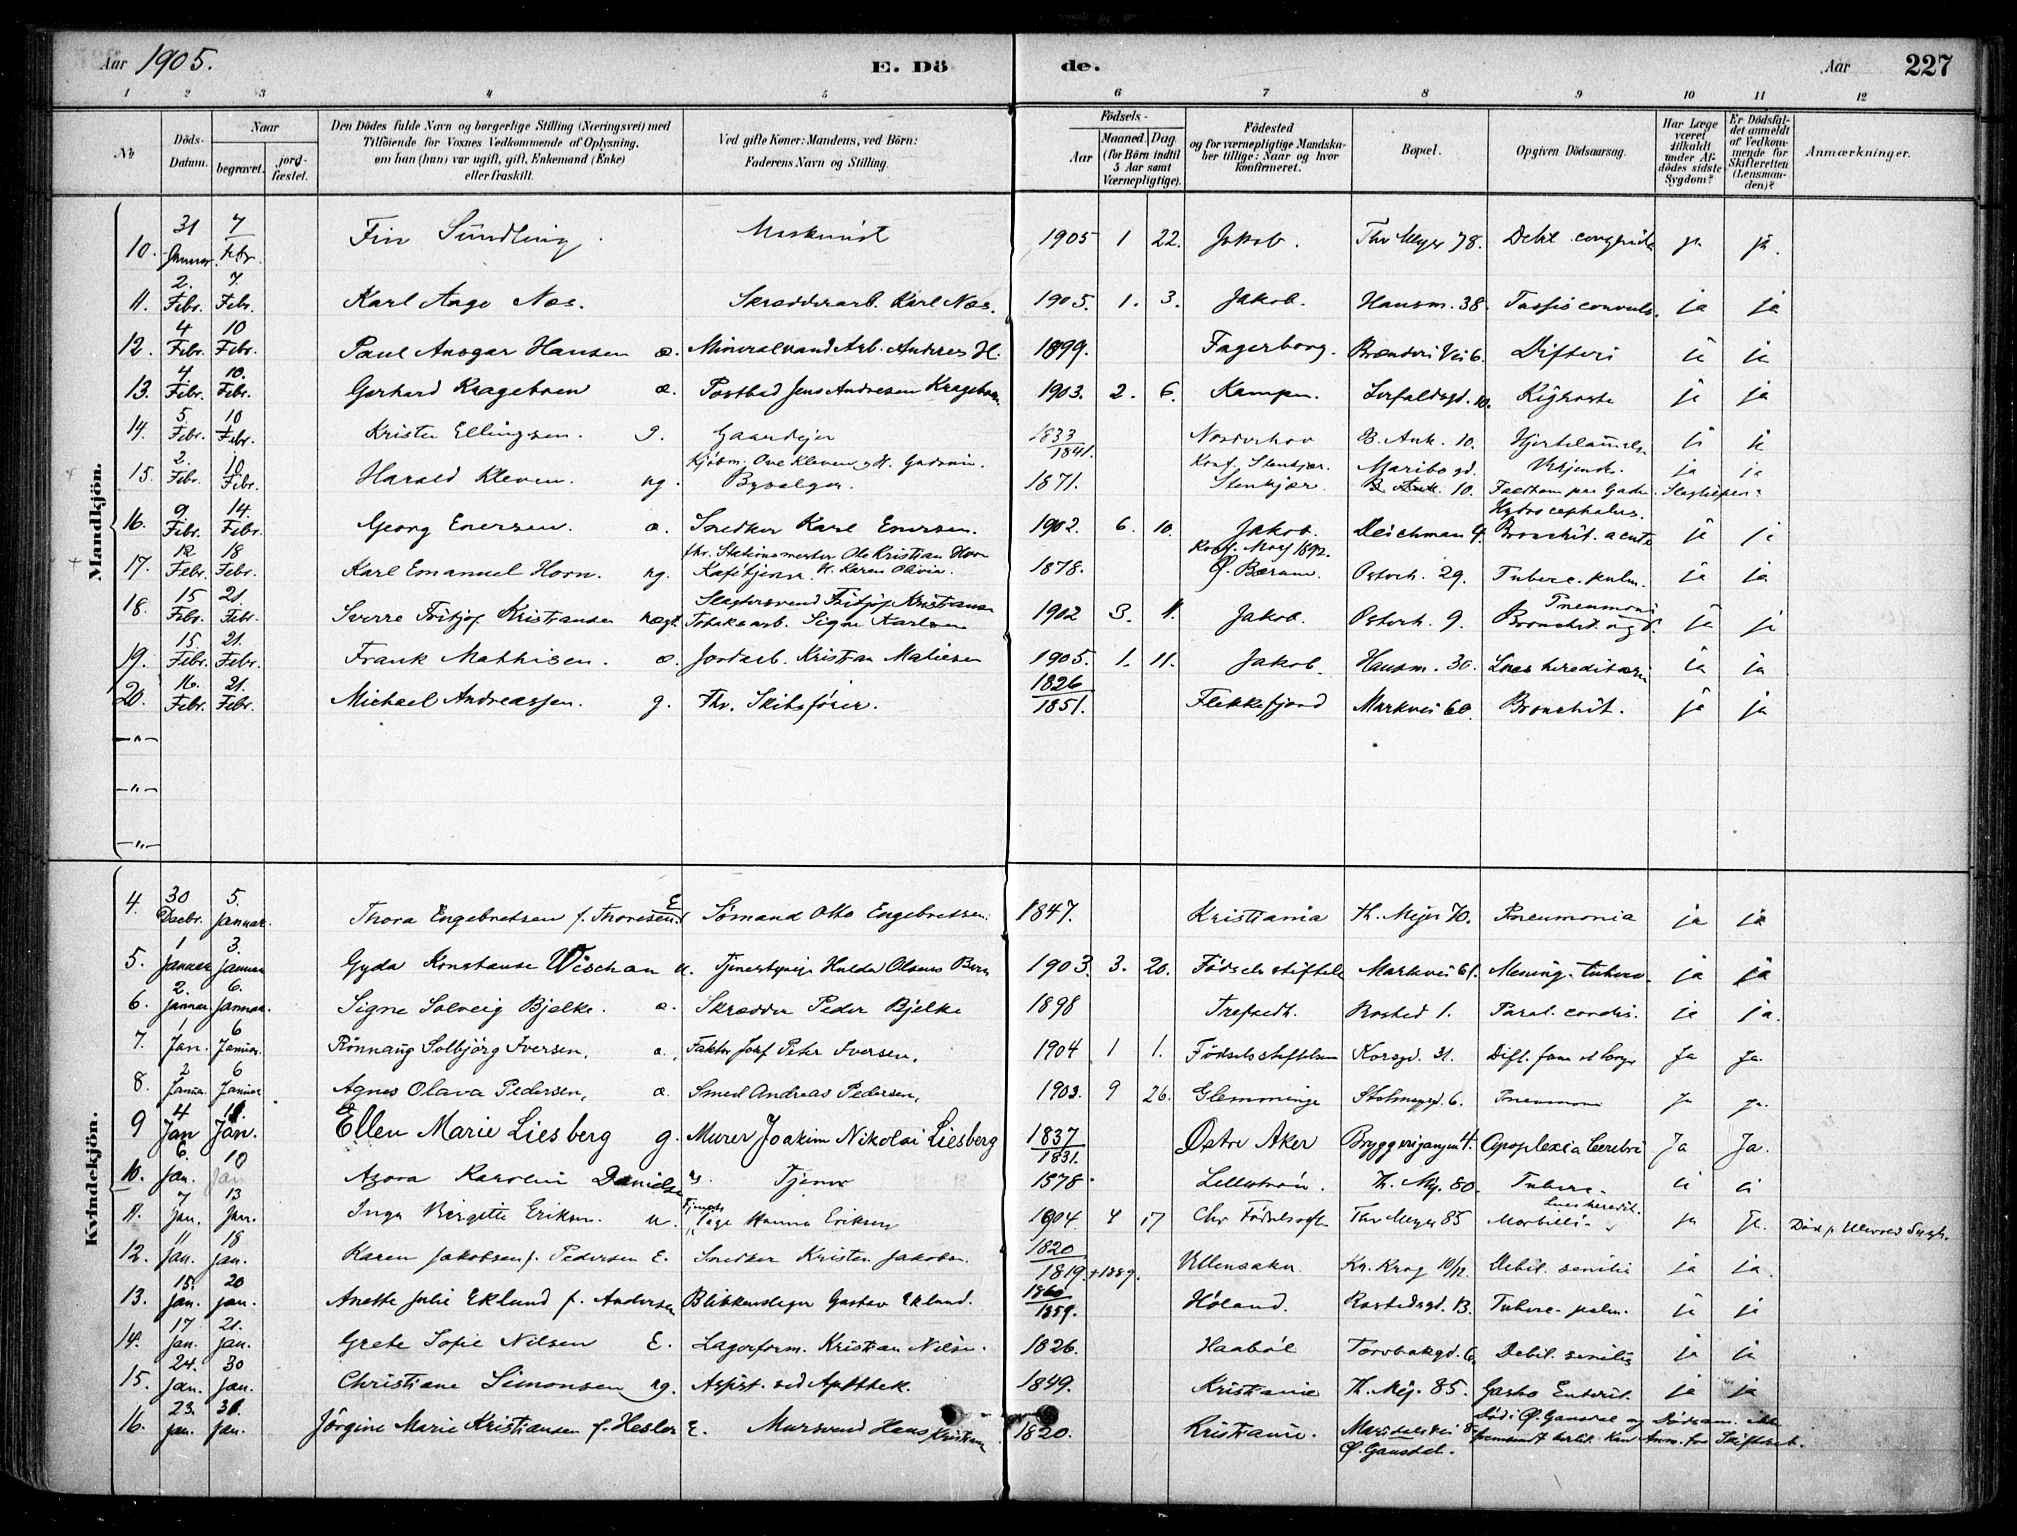 Aar 1905. E. Dö de. Aar 227
1 2 3 4 5 6 7 8 9 10 11 12
No. Döds-Datum. Naar begravet. jord-fæstet. Den Dödes fulde Navn og borgerlige Stilling (Næringsvei) med Tilföiende for Voxnes Vedkommende af Oplysning, om han (hun) var ugift, gift, Enkemand (Enke) eller fraskilt. Ved gifte Koner: Mandens, ved Börn: Faderens Navn og Stilling. Födsels- Aar Maaned Dag (for Börn indtil 5 Aar samt Værnepligtige). Födested og for værnepligtige Mandskaber tillige: Naar og hvor konfirmeret. Bopæl. Opgiven Dödsaarsag. Har Læge været tilkaldt under Afdödes sidste Sygdom? Er Dödsfaldet anmeldt af Vedkommende for Skifteretten (Lensmanden)? Anmærkninger.
Mandkjön.
10. 31 Januar. 7 Febr. Fin Sundling. Maskinist 1905 1 22. Jakob. Thv Meyer 78. Debil. congenita ja ja.
11. 2. Febr. 7. Febr. Karl Aage Næs. Skrædderarb. Karl Næs. 1905. 1. 3. Jakob. Hausm. 38. Tussis convuls. ja ja
12. 4 Febr. 10 Febr. Paul Ansgar Hansen æ. Mineralvand Arb. Anders H. 1899. Fagerborg. Brænderi Vei 6. Difteri ja ja
13. 4. Febr. 10. Febr. Gerhard Krageboen æ. Postbud Jens Andresen Krageboen 1903. 2. 6. Kampen. 10. Kighoste ja ja
14. 5. Febr. 10 Febr. Krister Ellingsen. g. Gaardejer 1833 1841. Norderhov B. Ank. 10. ja ja
15. 2. Febr. 10 Febr. Harald Kleven. ug. Kjøbm. Ove Kleven Bysælger. 1871. Konf. Stenkjær. Stenkjær. Maribogd. B. Ank. 10. ja ja
16. 9. Febr. 14. Febr. Georg Enersen. æ. Snedker Karl Enersen. 1902. 6. 10. Jakob. Deichman 4. Hydrocephalus. Bronchit. acuta ja ja
17. 12 Febr. 18 Febr. Karl Emanuel Horn. ug. fhv. Stationsmester Ole Kristian Horn Kafétjener. H. Karen Olivia. 1878. Konf. 1892. Ø. Bærum. Osterh. 29. Tuberc. pulm. ja ja
18. 15 Febr. 21. Febr. Sverre Fritjof Kristiansen uægt. Slagtersvend Fritjof Kristiansen Tobakarb. Signe Karlsen 1902 3. 11. Jakob. Osterh. 9. Pneumoni Bronchit. ja ja
19. 15. Febr. 21. Febr. Frank Mathisen. æ. Jordarb. Kristian Matiesen 1905. 1. 11. Jakob. Hausm. 30. Lues hereditaria ja ja
20. 16. Febr. 21. Febr. Michael Andreassen. g. Fhv. Skibsfører. 1826 1851. Flekkefjord Markvei 60. Bronchit. ja ja
—"—
—"—
—"—
Kvindekjön.
4. 30 Decbr. 5. Januar. Thora Engebretsen f. Thoresen. E Sömand Otto Engebretsen. 1847. Kristiania Th. Mejer 70. Pneumonia ja ja
5. 1 Januar 3. Januar Gyda Konstanse Wischan u. Tjenestepige Hulda Olsens Barn 1903. 3. 20. Födselsstiftels Markvei 61. Mening. tuberc. ja ja
6. 2. Januar 6. Januar. Signe Solveig Bjelke. æ. Skrædder Peder Bjelke 1898 Trefoedh. Rosted 1. Paral. cordis. ja ja.
7. 1 Jan. 6 Januar. Rönnaug Solbjörg Iversen, æ., Faktor Josf Petr Iversen, 1904 1 1. Födselsstiftelsen Korsgd. 31. Dift. fauc et laryn Ja Ja.
8. 2 Januar 6 Januar Agnes Olava Pedersen, æ. Smed Andreas Pedersen, 1903. 9 26. Glemminge Stolmagergd. 6. Pneumoni Ja ja.
9 4 Jan 11. Jan. Ellen Marie Liesberg g. Murer Joakim Nikolai Liesberg 1837 1831. Østre Aker Bryggerigangen 4. Apoplexia Cerebri Ja Ja.
10. 6. Jan. 10 Jan Azora Karolin Danielsen ug. Tjener 1878. Lillestrøm. Th. Mej. 80. Tuberc. ja ja
11. 7 Jan. 13 Jan. Inga Birgitte Eriksen. u. Tjeneste Pige Hanna Eriksen 1904. 4 17 Chr Födselsstift Thv Meyer 85 Lues heredit. Morbilli ja ja. Död p. Ullevaal Sygh.
12. 11 Jan. 18 Jan. Karen Jakobsen f. Pedersen E. Snedker Kristen Jakobsen. 1820 1819 + 1889. Ullensaker Kr. Krog 10/12. Debil. senilis ja ja.
13. 15. Jan. 20 Jan. Anette Julie Eklund f. Andersen Blikkenslager Gustav Eklund. 1860 1859. Høland. Rostedsgd. 13. Tuberc. pulm. ja ja
14. 17 Jan. 21. Jan. Grete Sofie Nilsen E. Lagerform. Kristian Nilsen. 1826. Haabøl Torvbakgd. 6 Debil. senilis ja ja
15. 24. Jan. 30 Jan. Christiane Simonsen ug. Assist. ved Apothek. 1849. Kristiania Th. Mej. 85. Gastro Enterit. ja ja
16. 23. Jan. 31. Jan. Jörgine Marie Kristiansen f. Hesler E. Mursvend Hans Kristiansen 1820. Kristiania. Maridalsvei 8 Ø. Gausdal. Död i Ø. Gausdal og Dödsanm. ikke fremsendt hertil. Kun Anm. fra Skifteret.